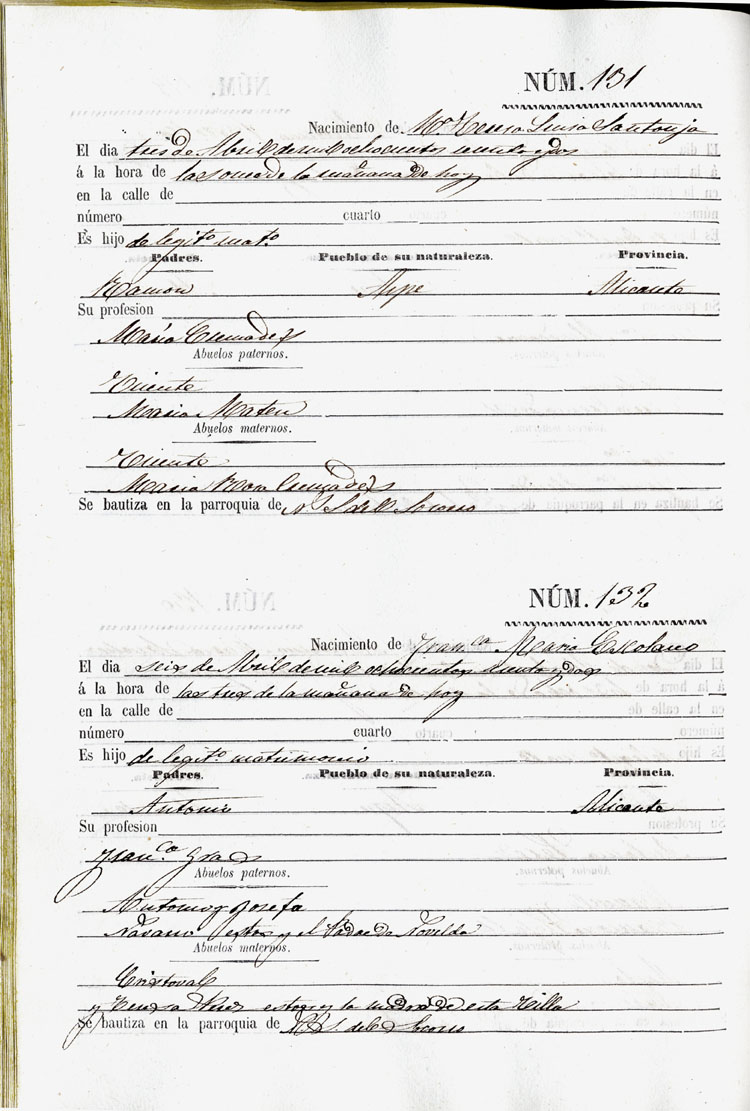 NÚM. 131
Nacimiento de Mª Teresa Luisa Santonja
El dia tres de Abril de mil ochocientos sesenta y dos
á la hora de las once de la mañana de hoy
en la calle de
número cuarto
Es hijo de legitº matº
Padres. Pueblo de su naturaleza. Provincia.
Ramon Aspe Alicante
Su profesion
Maria Cremades
Abuelos paternos.
Vicente
Maria Mateu
Abuelos maternos.
Vicente
Maria Rosa Cremades
Se bautiza en la parroquia de N S del Socorro
NÚM. 132
Nacimiento de Franca Maria Escolano
El dia seis de Abril de mil ochocientos sesenta y dos
á la hora de las tres de la mañana de hoy
en la calle de
número cuarto
Es hijo de legitº matrimonio
Padres. Pueblo de su naturaleza. Provincia.
Antonio Alicante
Su profesion
Franca
Abuelos paternos.
Antonio y Josefa
Navarro estos y el Padre de Novelda
Abuelos maternos.
Cristoval
y Teresa estos y la madre de esta Villa
Se bautiza en la parroquia de N S del Socorro